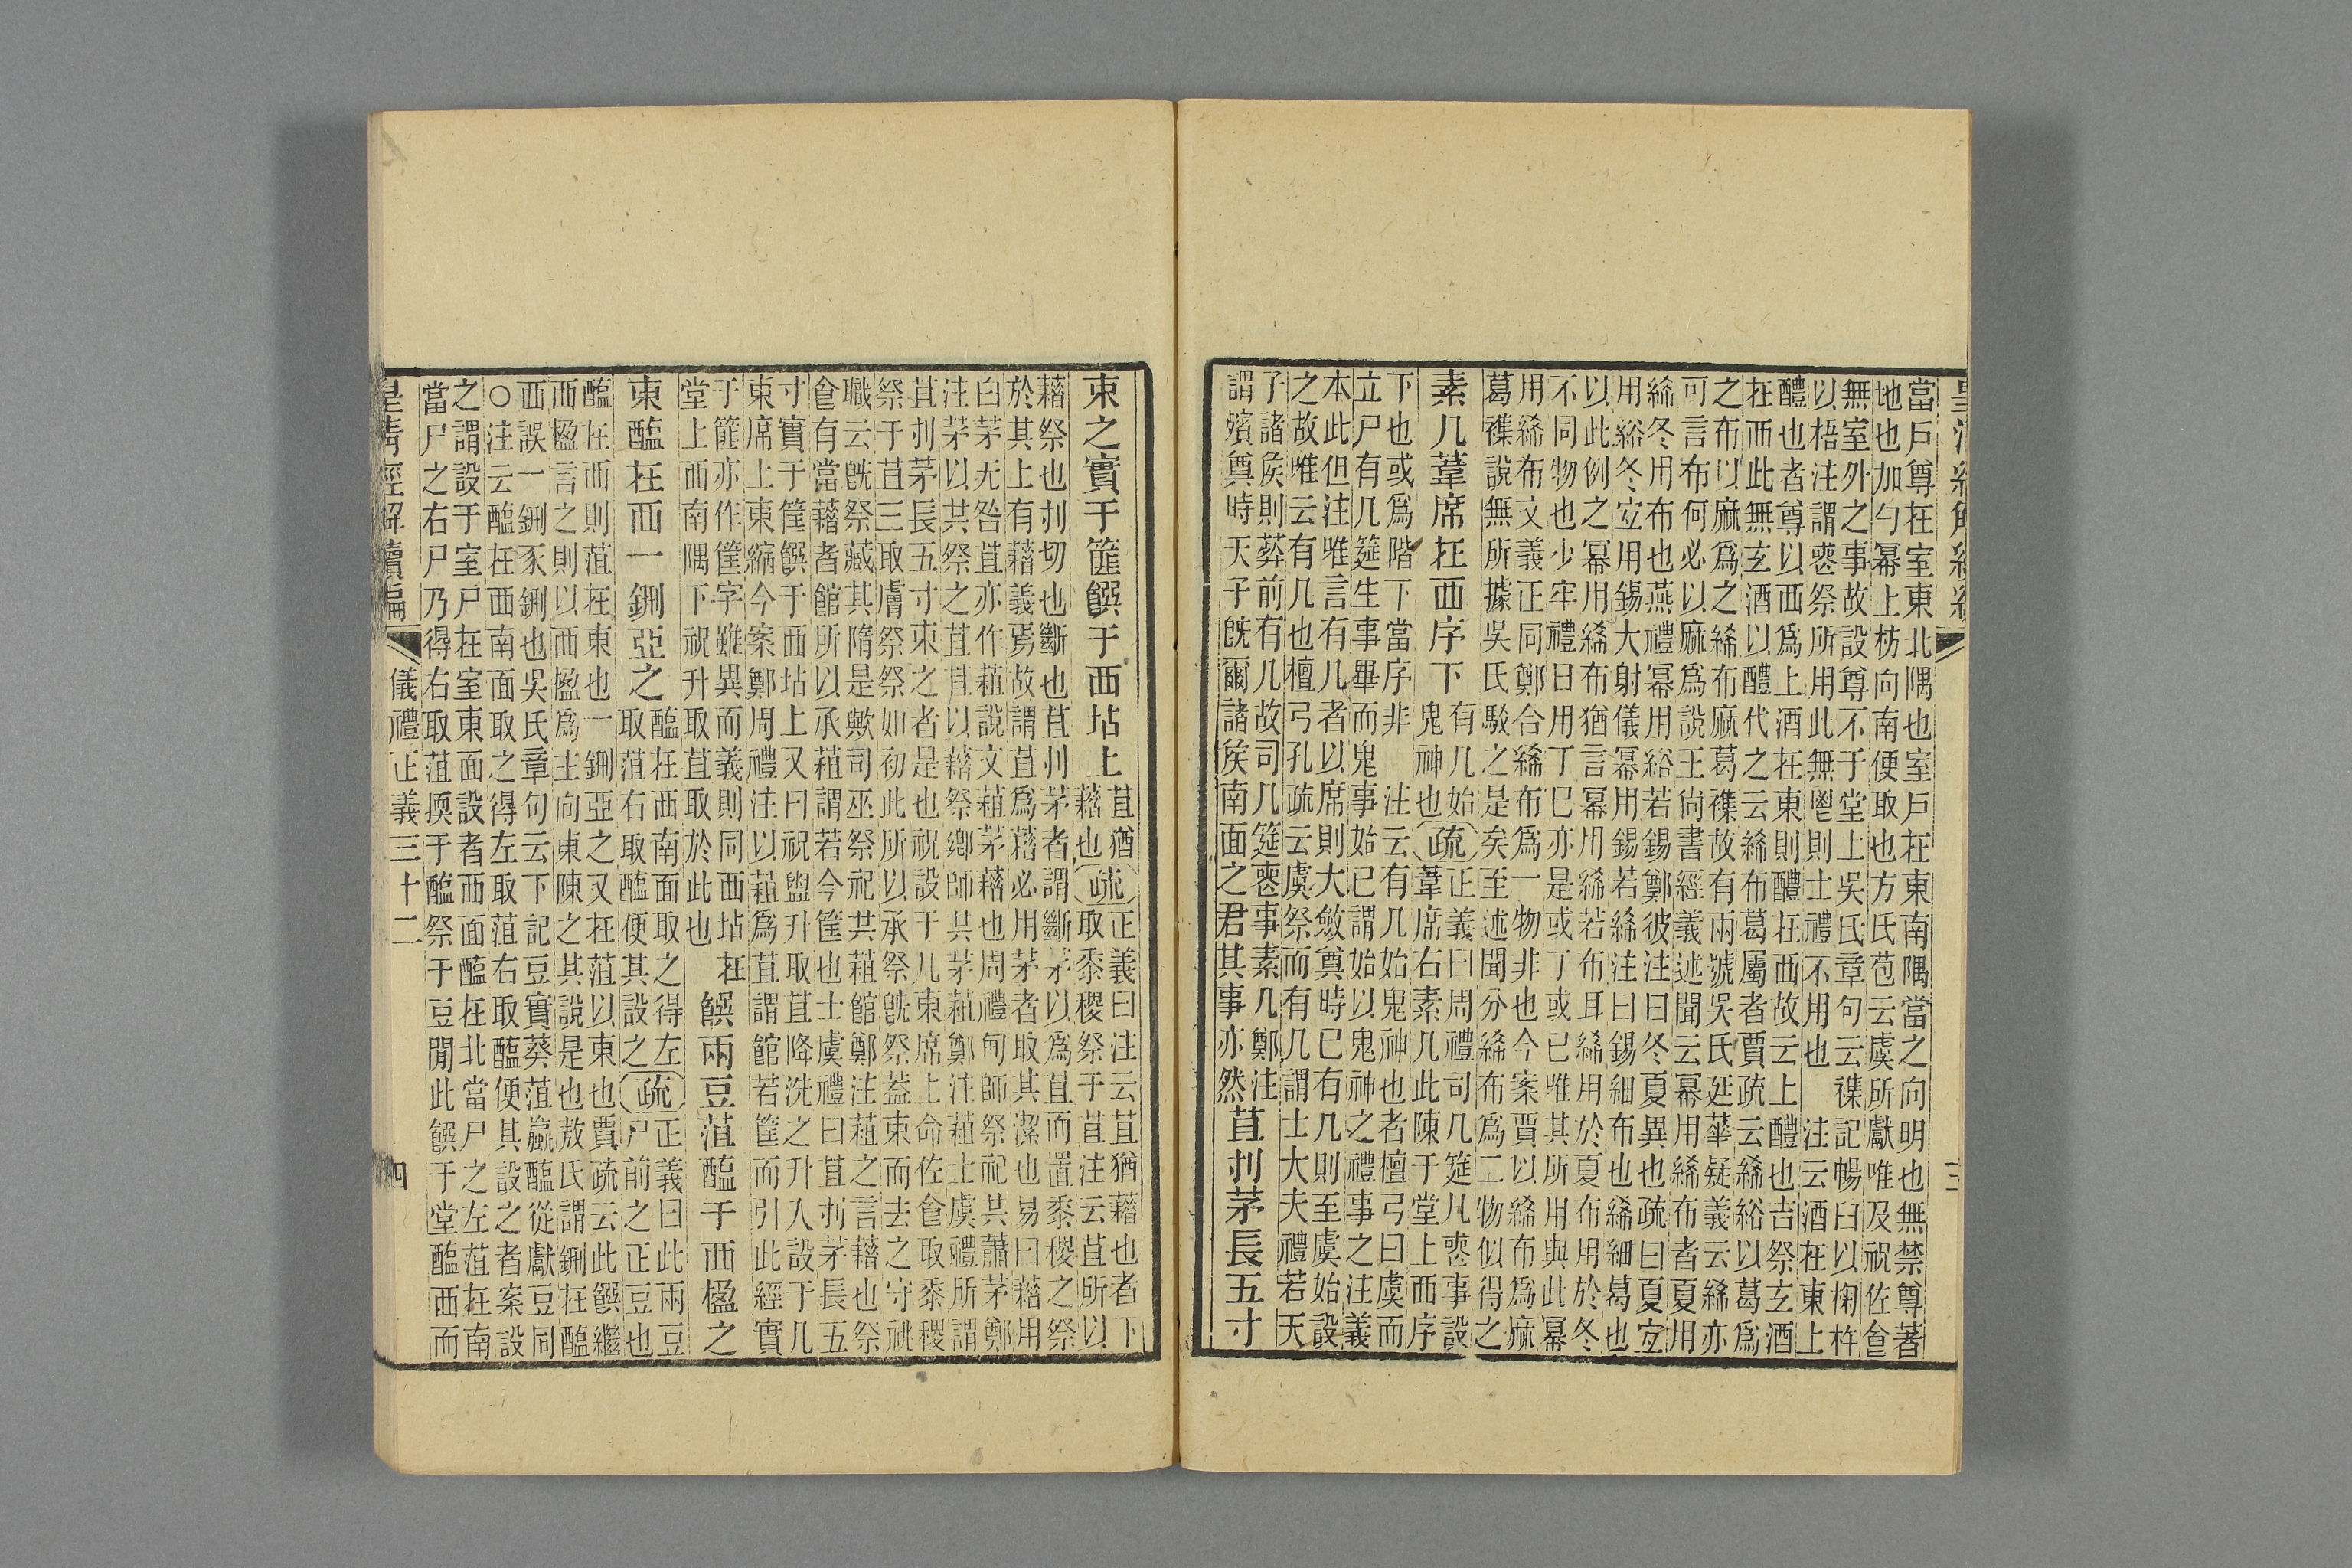 當戶尊在室東北隅也室戶在東南隅當之向明也無禁尊著
地也加勺冪上枋向南便取也方氏苞云虞所獻唯及祝佐食
無室外之事故設尊不于堂上吳氏章句云襍記暢臼以椈杵
以梧注謂喪祭所用此無鬯則士禮不用也 注云酒在東上
醴也者尊以西爲上酒在東則醴在西故云上醴也吉祭玄酒
在西此無玄酒以醴代之云絺布葛屬者賈疏云絺綌以葛爲
之布以麻爲之絺布麻葛襍故有兩號吳氏廷華疑義云絺亦
可言布何必以麻爲說王尙書經義述聞云冪用絺布者夏用
絺冬用布也燕禮冪用綌若錫鄭彼注曰冬夏異也疏曰夏宜
用綌冬宜用錫大射儀冪用錫若絺注曰錫細布也絺細葛也
以此例之冪用絺布猶言冪用絺若布耳絺用於夏布用於冬
不同物也少牢禮日用丁巳亦是或丁或已唯其所用與此冪
用絺布文義正同鄭合絺布爲一物非也今案賈以絺布爲麻
葛襍說無所據吳氏駮之是矣至述聞分絺布爲二物似得之
素几葦席在西序下
有几始
鬼神也
疏
正義曰周禮司几筵凡喪事設
葦席右素几此陳于堂上西序
下也或爲階下當序非 注云有几始鬼神也者檀弓曰虞而
立尸有几筵生事畢而鬼事始已謂始以鬼神之禮事之注義
本此但注唯言有几者以席則大斂奠時已有几則至虞始設
之故唯云有几也檀弓孔疏云虞祭而有几謂士大夫禮若天
子諸侯則葬前有几故司几筵喪事素几鄭注
謂殯奠時天子旣爾諸侯南面之君其事亦然
苴刌茅長五寸
皇清經解續編 三
束之實于篚饌于西坫上
苴猶
藉也
疏
正義曰注云苴猶藉也者下
取黍稷祭于苴注云苴所以
藉祭也刌切也斷也苴刌茅者謂斷茅以爲苴而置黍稷之祭
於其上有藉義焉故謂苴爲藉必用茅者取其潔也易曰藉用
白茅无咎苴亦作蒩說文蒩茅藉也周禮甸師祭祀共蕭茅鄭
注茅以共祭之苴苴以藉祭鄉師共茅蒩鄭注蒩士虞禮所謂
苴刌茅長五寸束之者是也祝設于几東席上命佐食取黍稷
祭于苴三取膚祭祭如初此所以承祭旣祭蓋束而去之守祧
職云旣祭藏其隋是歟司巫祭祀共蒩館鄭注蒩之言藉也祭
食有當藉者館所以承蒩謂若今筐也士虞禮曰苴刌茅長五
寸實于筐饌于西坫上又曰祝盥升取苴降洗之升入設于几
東席上東縮今案鄭周禮注以蒩爲苴謂館若筐而引此經實
于篚亦作筐字雖異而義則同西坫在
堂上西南隅下祝升取苴取於此也
饌兩豆菹醢于西楹之
東醢在西一鉶亞之
醢在西南面取之得左
取菹右取醢便其設之
疏
正義曰此兩豆
尸前之正豆也
醢在西則菹在東也一鉶亞之又在菹以東也賈疏云此饌繼
西楹言之則以西楹爲主向東陳之其說是也敖氏謂鉶在醢
西誤一鉶豕鉶也吳氏章句云下記豆實葵菹蠃醢從獻豆同
○注云醢在西南面取之得左取菹右取醢便其設之者案設
之謂設于室尸在室東面設者西面醢在北當尸之左菹在南
當尸之右尸乃得右取菹㨎于醢祭于豆閒此饌于堂醢西而
皇清經解續編 儀禮正義三十二 四